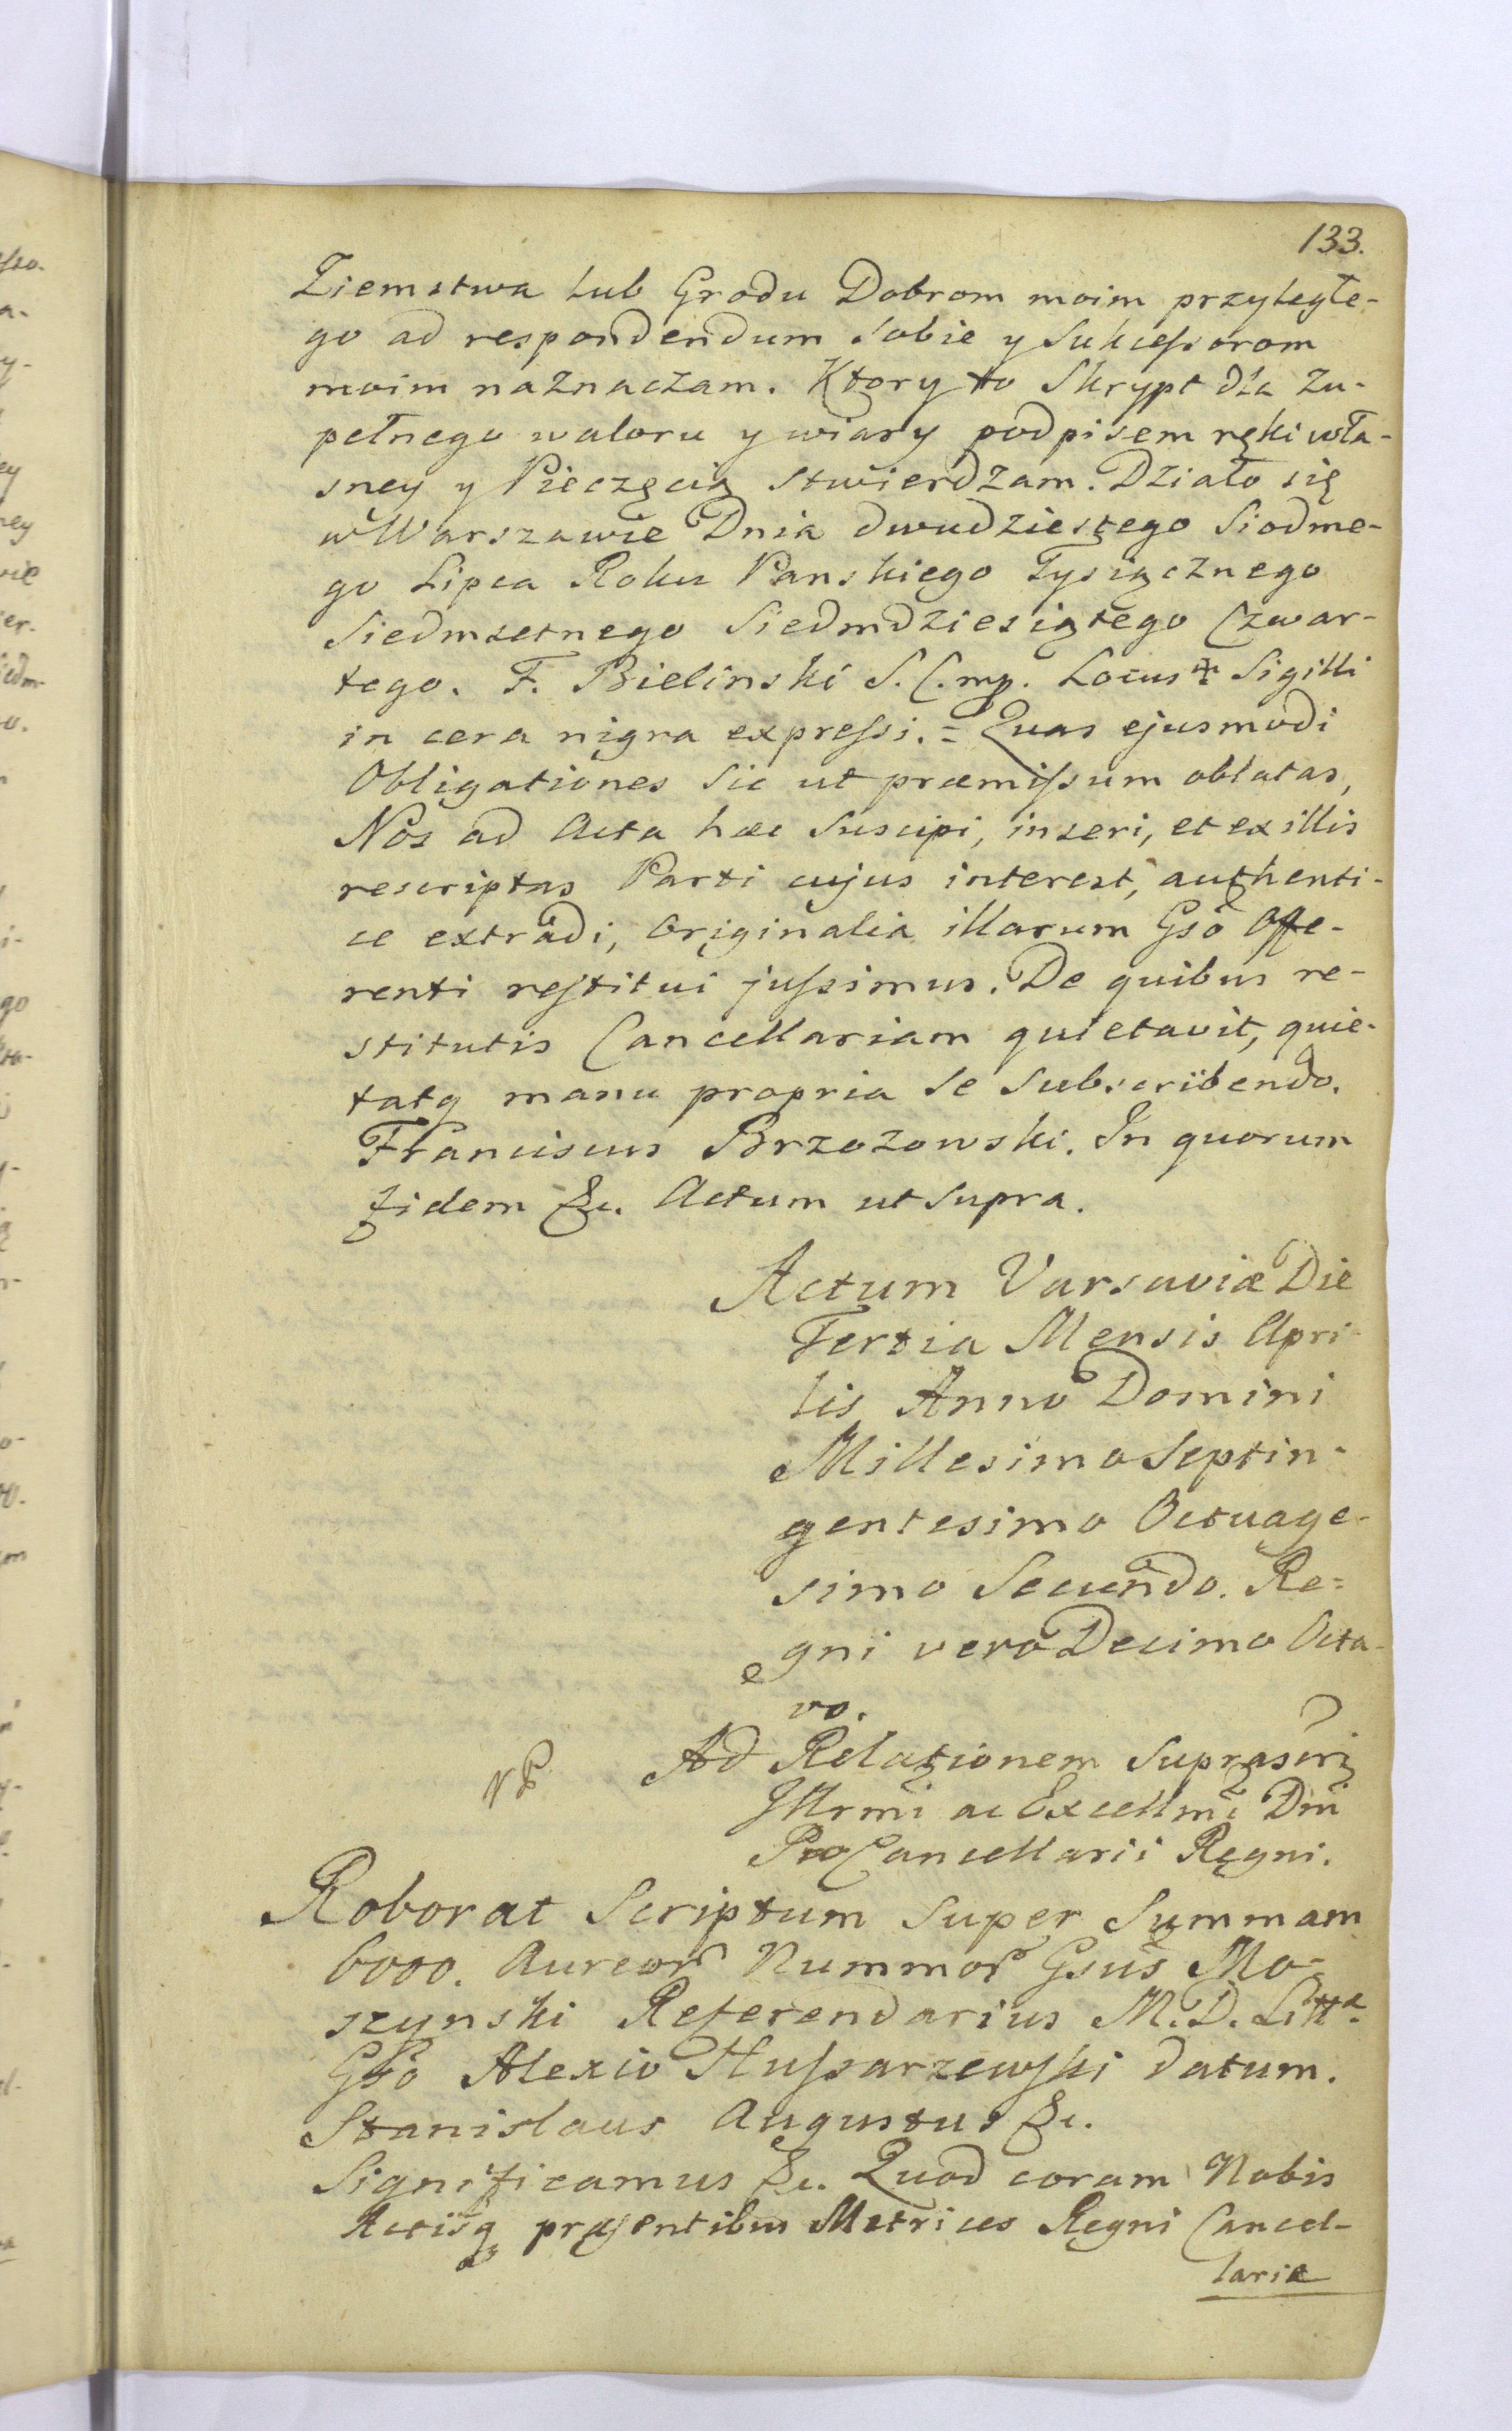 133.
Ziemstwa lub Grodu Dobrom moim przyległe-
go ad respondendum sobie y Sukceſsorom
moim naznaczam. Ktory to Skrypt dla zu-
pełnego waloru y wiary podpisem ręki wła-
sney y Pieczęcią stwierdzam. Działo się
w Warszawie Dnia dwudziestego Siodme-
go Lipca Roku Panskiego Tysiącznego
Siedmsetnego Siedmdziesiątego Czwar-
tego. F. Bielinski S.C. mp. Locus Sigilli
in cera nigra expreſsi. = Quas ejusmodi
Obligationes sic ut præmiſsum oblatas,
Nos ad Acta hæc suscipi, inseri, et ex illis
rescriptas Parti cujus interest, authenti-
ce extradi, Originalia illarum Gso Offe-
renti reſtitui juſsimus. De quibus re-
stitutis Cancellariam quietavit, quie-
tatq manu propria se subscribendo.
Franciscus Brzozowski. In quorum
fidem &c. Actum ut supra.
Actum Varsaviæ Die
Tertia Mensis Apri-
lis Anno Domini
Millesimo Septin-
gentesimo Octuage-
simo Secundo. Re=
gni vero Decimo Octa-
vo.
Ad Relationem suprascri
Illrmi ac Excellmi Dni
ProCancellarii Regni.
Roborat Scriptum super Summam
6000. Aureor Nummor Gsus Mo-
szynski Referendarius M.D. Litt.
Gso Alexio Huſsarzewſki datum.
Stanislaus Augustus &c.
Significamus &c. Quod coram Nobis
Actisq præsentibus Metrices Regni Cancel-
lariæ